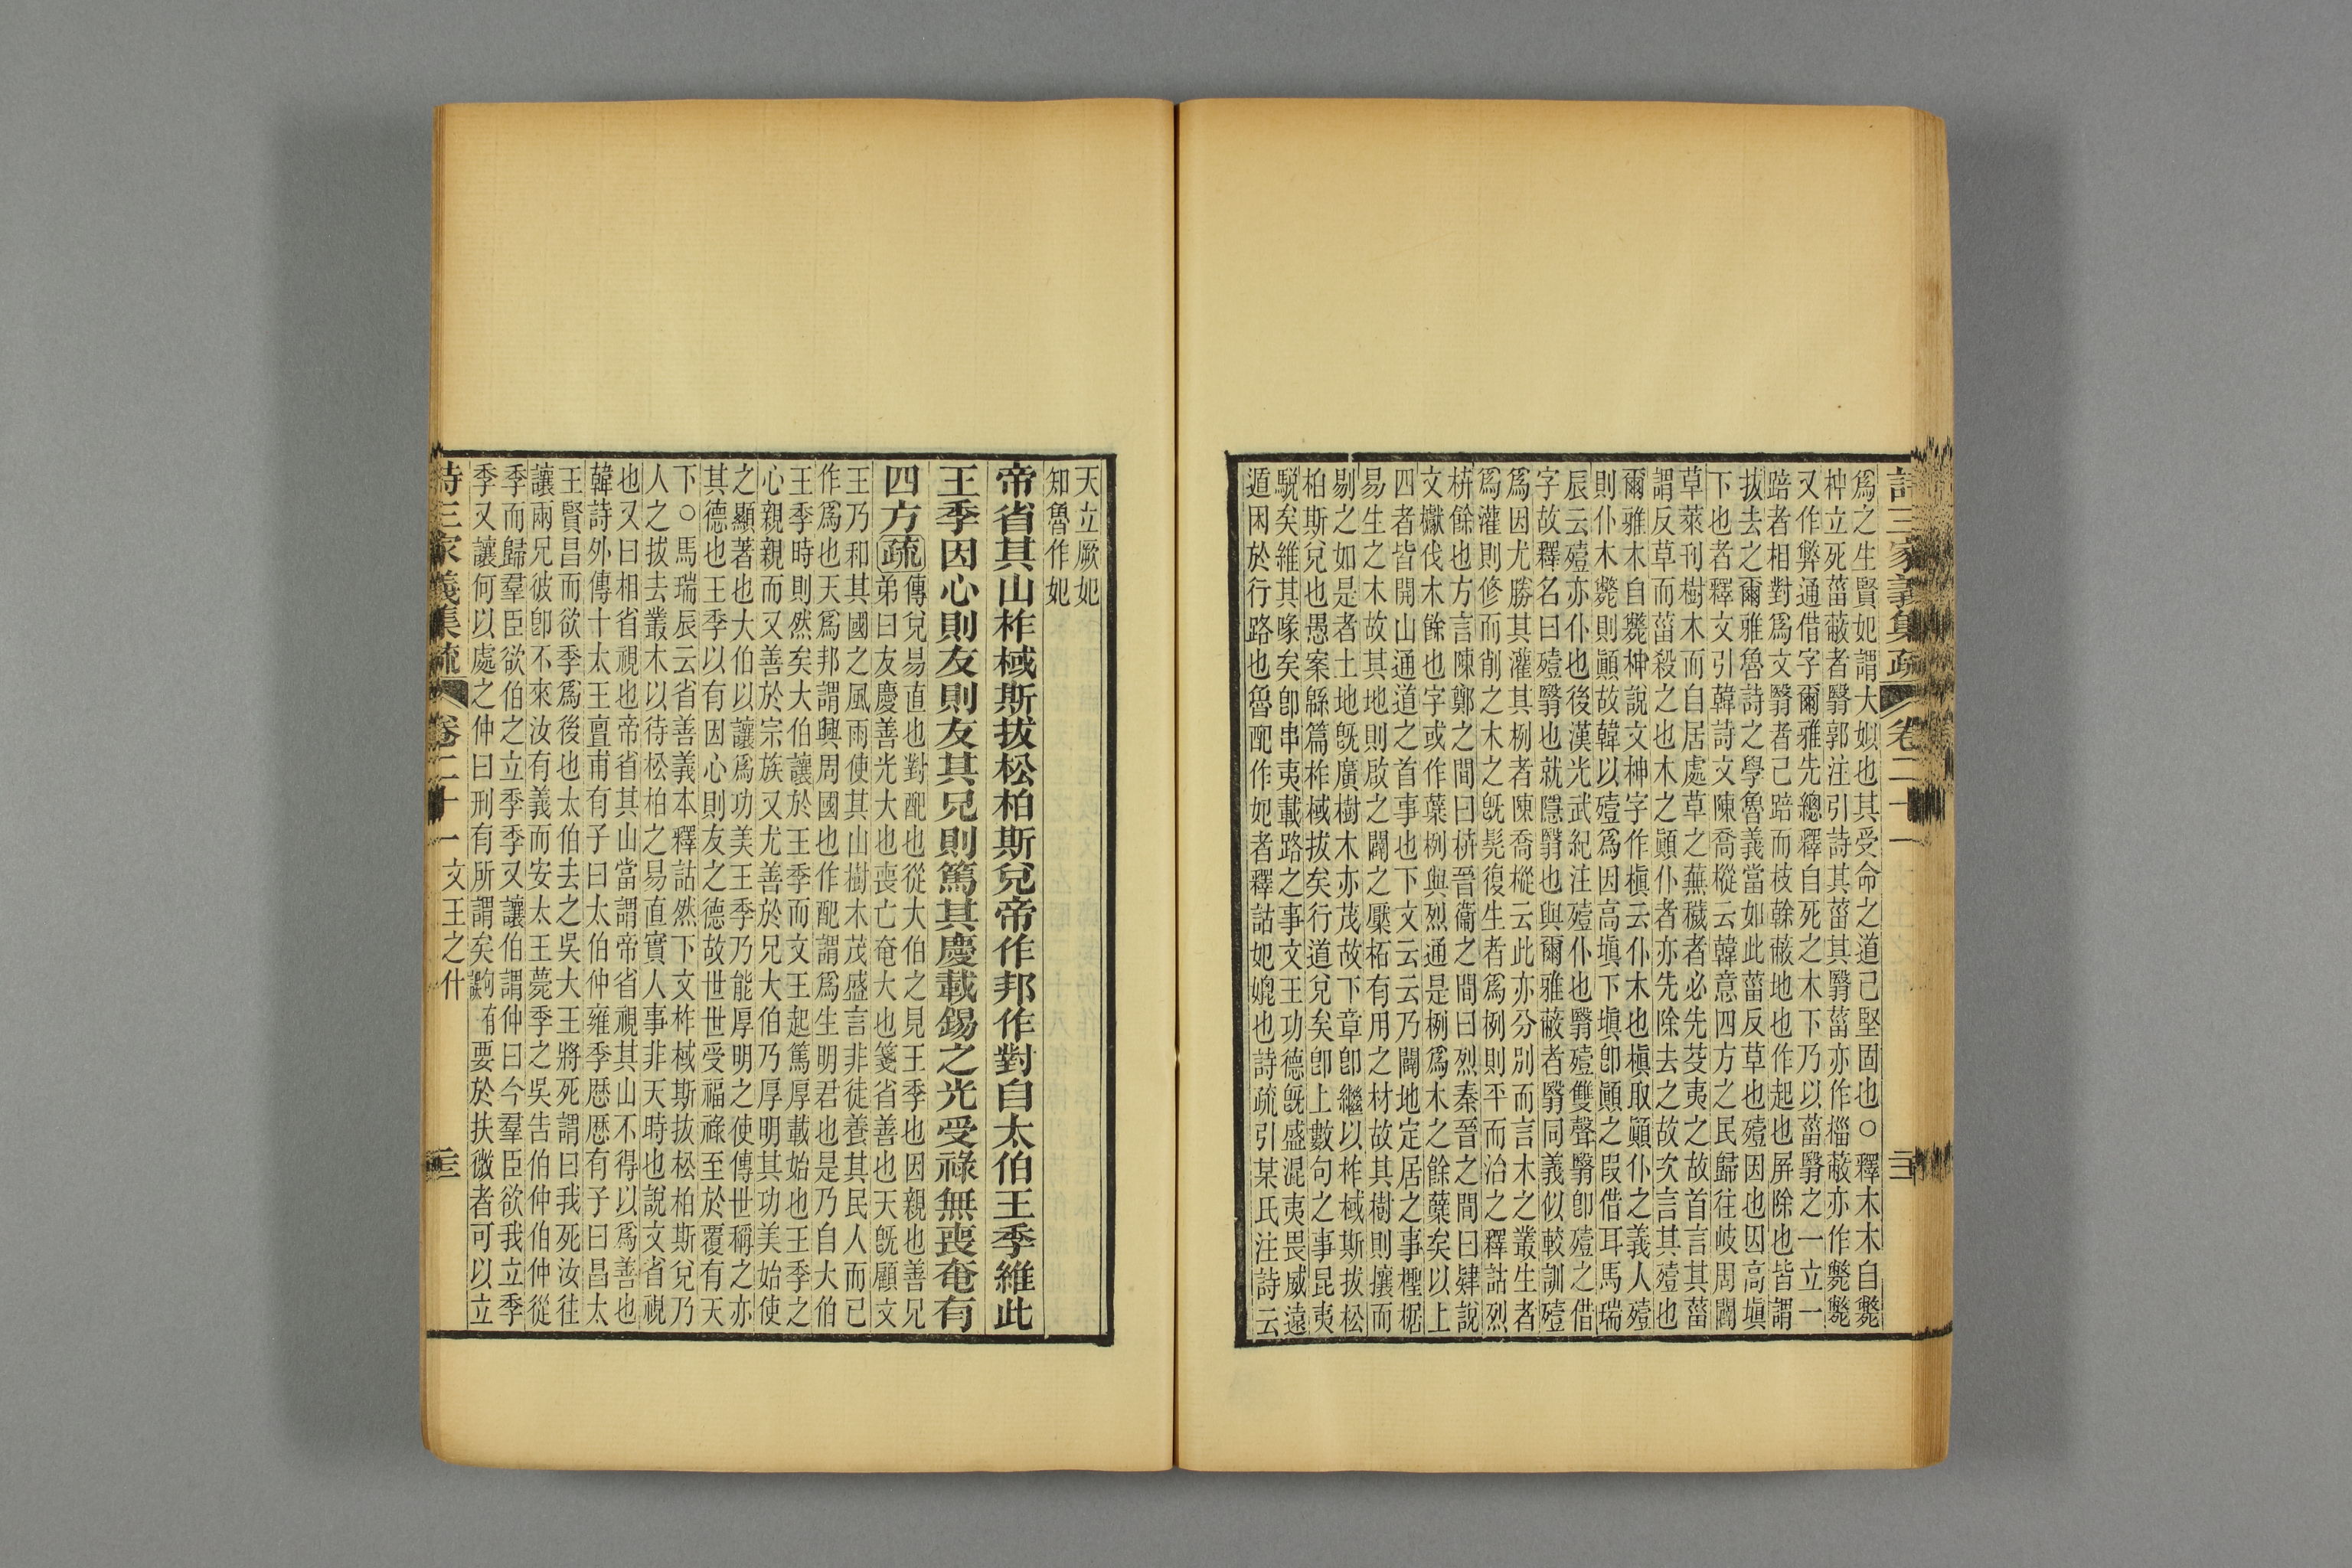 詩三家義集疏 卷二十一 三
爲之生賢妃謂大姒也其受命之道已堅固也○釋木木自斃
柛立死菑蔽者翳郭注引詩其菑其翳菑亦作椔蔽亦作斃斃
又作弊通借字爾雅先總釋自死之木下乃以菑翳之一立一
踣者相對爲文翳者己踣而枝榦蔽地也作起也屏除也皆謂
拔去之爾雅魯詩之學魯義當如此菑反草也殪因也因高塡
下也者釋文引韓詩文陳喬樅云韓意四方之民歸往岐周闢
草萊刊樹木而自居處草之蕪穢者必先芟夷之故首言其菑
謂反草而菑殺之也木之顚仆者亦先除去之故次言其殪也
爾雅木自斃柛說文柛字作槇云仆木也槇取顚仆之義人殪
則仆木斃則顚故韓以殪爲因高塡下塡卽顚之叚借耳馬瑞
辰云殪亦仆也後漢光武紀注殪仆也翳殪雙聲翳卽殪之借
字故釋名曰殪翳也就隱翳也與爾雅蔽者翳同義似較訓殪
爲因尤勝其灌其栵者陳喬樅云此亦分別而言木之叢生者
爲灌則修而削之木之旣髡復生者爲栵則平而治之釋詁烈
栟餘也方言陳鄭之間曰栟晉衞之間曰烈秦晉之間曰肄說
文櫱伐木餘也字或作蘖栵與烈通是栵爲木之餘蘖矣以上
四者皆開山通道之首事也下文云云乃闢地定居之事檉椐
易生之木故其地則啟之闢之檿柘有用之材故其樹則攘而
剔之如是者土地旣廣樹木亦茂故下章卽繼以柞棫斯拔松
柏斯兌也愚案緜篇柞棫拔矣行道兌矣卽上數句之事昆夷
駾矣維其喙矣卽串夷載路之事文王功德旣盛混夷畏威遠
遁困於行路也魯配作妃者釋詁妃媲也詩疏引某氏注詩云
天立厥妃
知魯作妃
帝省其山柞棫斯拔松柏斯兌帝作邦作對自太伯王季維此
王季因心則友則友其兄則篤其慶載錫之光受祿無喪奄有
四方疏傳兌易直也對配也從大伯之見王季也因親也善兄
弟曰友慶善光大也喪亡奄大也箋省善也天旣顧文
王乃和其國之風雨使其山樹木茂盛言非徒養其民人而已
作爲也天爲邦謂興周國也作配謂爲生明君也是乃自大伯
王季時則然矣大伯讓於王季而文王起篤厚載始也王季之
心親親而又善於宗族又尤善於兄大伯乃厚明其功美始使
之顯著也大伯以讓爲功美王季乃能厚明之使傳世稱之亦
其德也王季以有因心則友之德故世世受福祿至於覆有天
下○馬瑞辰云省善義本釋詁然下文柞棫斯拔松柏斯兌乃
人之拔去叢木以待松柏之易直實人事非天時也說文省視
也又曰相省視也帝省其山當謂帝省視其山不得以爲善也
韓詩外傳十太王亶甫有子曰太伯仲雍季歷歷有子曰昌太
王賢昌而欲季爲後也太伯去之吳大王將死謂曰我死汝往
讓兩兄彼卽不來汝有義而安太王薨季之吳告伯仲伯仲從
季而歸羣臣欲伯之立季季又讓伯謂仲曰今羣臣欲我立季
季又讓何以處之仲曰刑有所謂矣要於扶微者可以立
詩三家義集疏 卷二十一 文王之什 三